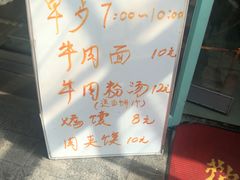 早夕7:00~10:00
牛肉面 10元
牛肉粉汤12元
烤馍 8元
肉夹馍 10元